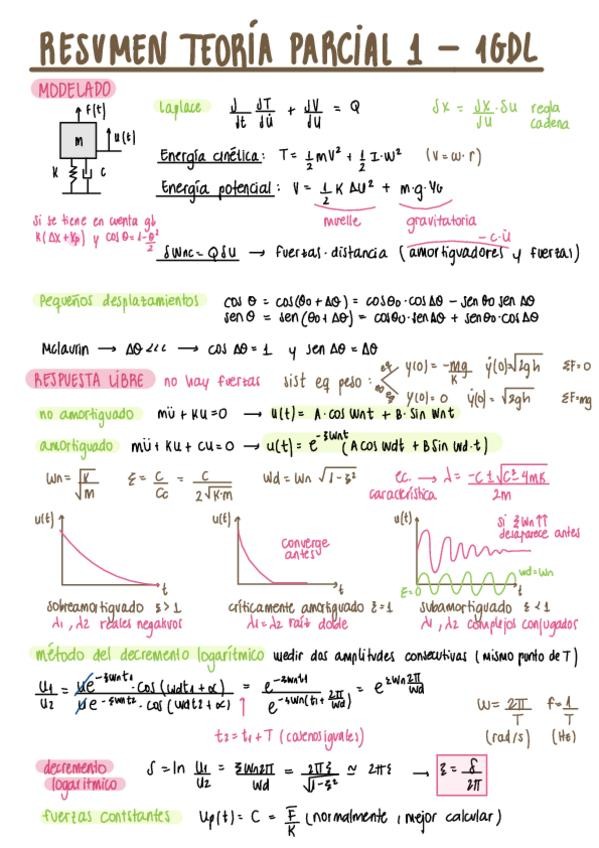 RESUMEN TEORÍA PARCIAL 1 - 1GDL
MODELADO
F(t)
m
u(t)
K
C
Laplace d/dt dT/du̇ + dV/du = Q
δx = δx/δu · δu regla cadena
Energía cinética: T = 1/2 m v² + 1/2 I·w² (V = w·r)
Energía potencial: V = 1/2 K Δu² + m·g·yG
muelle gravitatoria
si se tiene en cuenta
y cos θ = 1 - θ²/2
-c·u̇
δWnc = Q δu → fuerzas · distancia (amortiguadores y fuerzas)
Pequeños desplazamientos cos θ = cos(θo + Δθ) = cosθo · cos Δθ - sen θo sen Δθ
sen θ = sen(θo + Δθ) = cosθo · sen Δθ + senθo · cos Δθ
Mclaurin → Δθ <<< → cos Δθ = 1 y sen Δθ = Δθ
RESPUESTA LIBRE no hay fuerzas sist eq peso:
y(0) = -mg/K ẏ(0) = √2gh ΣF=0
y(0) = 0 ẏ(0) = √2gh ΣF=mg
no amortiguado mü + Ku = 0 → u(t) = A·cos wnt + B·sin wnt
amortiguado mü + Ku + Cu = 0 → u(t) = e^-ξwnt (A cos wdt + B sin wd·t)
Wn = √K/√m ξ = C/Cc = C/2√K·m Wd = Wn √1-ξ² ec. característica → λ = -C ± √C²-4mK / 2m
u(t) t
u(t) converge antes t
u(t) si ξwn↑↑ desaparece antes
wd=wn
ξ=0 t
sobreamortiguado ξ>1 críticamente amortiguado ξ=1 subamortiguado ξ<1
λ1, λ2 reales negativos λ1=λ2 raíz doble λ1, λ2 complejos conjugados
método del decremento logarítmico medir dos amplitudes consecutivas (mismo punto de T)
u1/u2 = ue^-ξwnt1 · cos(wdt1+α) / ue^-ξwnt2 · cos(wdt2+α) = e^-ξwnt1 / e^-ξwn(t1+2π/wd) = e^ξwn2π/wd
w = 2π/T f = 1/T
(rad/s) (Hz)
t2 = t1 + T (cosenos iguales)
decremento logarítmico δ = ln u1/u2 = ξwn2π/wd = 2πξ/√1-ξ² ≃ 2πξ → ξ = δ/2π
fuerzas contstantes up(t) = C = F/K (normalmente, mejor calcular)